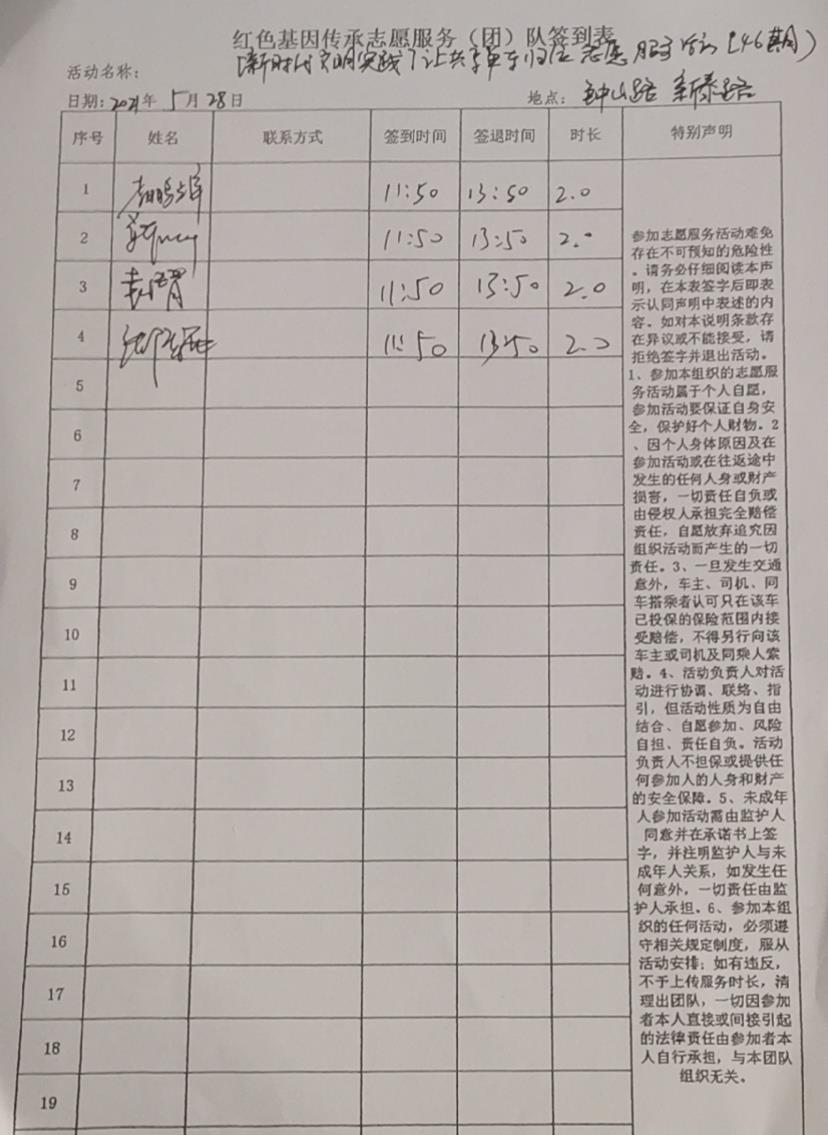 红色基因传承志愿服务（团）队签到表
活动名称：
[新时代文明实践]让共享单车归位志愿服务活动（46期）
日期：2021年 5月28日 地点：钟山路 新泰路
序号 姓名 联系方式 签到时间 签退时间 时长 特别声明
1 11:50 13:50 2.0
2 11:50 13:50 2.0
3 11:50 13:50 2.0
4 11:50 13:50 2.0
5
6
7
8
9
10
11
12
13
14
15
16
17
18
19
参加志愿服务活动难免
存在不可预知的危险性
。请务必仔细阅读本声
明，在本表签字后即表
示认同声明中表述的内
容。如对本说明条款存
在异议或不能接受，请
拒绝签字并退出活动。
1、参加本组织的志愿服
务活动属于个人自愿，
参加活动要保证自身安
全，保护好个人财物。2
、因个人身体原因及在
参加活动或在往返途中
发生的任何人身或财产
损害，一切责任自负或
由侵权人承担完全赔偿
责任，自愿放弃追究因
组织活动而产生的一切
责任。3、一旦发生交通
意外，车主、司机、同
车搭乘者认可只在该车
已投保的保险范围内接
受赔偿，不得另行向该
车主或司机及同乘人索
赔。4、活动负责人对活
动进行协调、联络、指
引，但活动性质为自由
结合、自愿参加、风险
自担、责任自负。活动
负责人不担保或提供任
何参加人的人身和财产
的安全保障。5、未成年
人参加活动需由监护人
同意并在承诺书上签
字，并注明监护人与未
成年人关系，如发生任
何意外，一切责任由监
护人承担。6、参加本组
织的任何活动，必须遵
守相关规定制度，服从
活动安排；如有违反，
不于上传服务时长，清
理出团队，一切因参加
者本人直接或间接引起
的法律责任由参加者本
人自行承担，与本团队
组织无关。